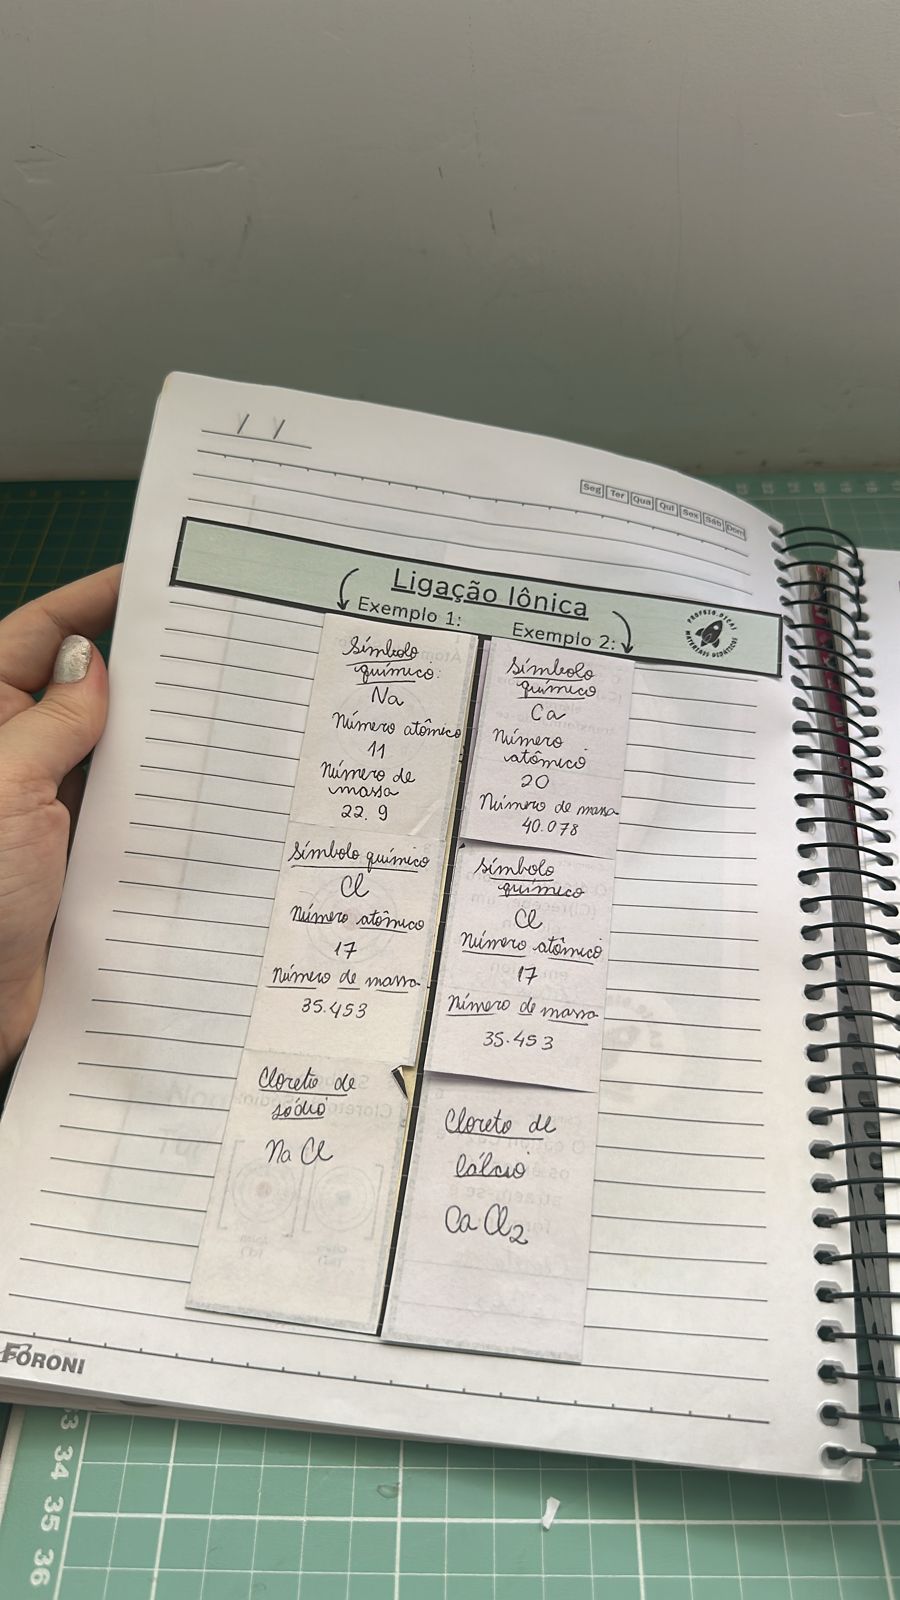 Seg Ter Qua Qui Sex Sáb Dom
Ligação Iônica
Exemplo 1:
Exemplo 2:
PROFSIO.DICAS
MATERIAIS DIDÁTICOS
Símbolo
químico:
Na
Número atômico
11
Número de
massa
22.9
Símbolo químico
Cl
Número atômico
17
Número de massa
35.453
Cloreto de
sódio
NaCl
Símbolo
químico
Ca
Número
atômico
20
Número de massa
40.078
Símbolo
químico
Cl
Número atômico
17
Número de massa
35.453
Cloreto de
Cálcio
CaCl₂
FORONI
33 34 35 36